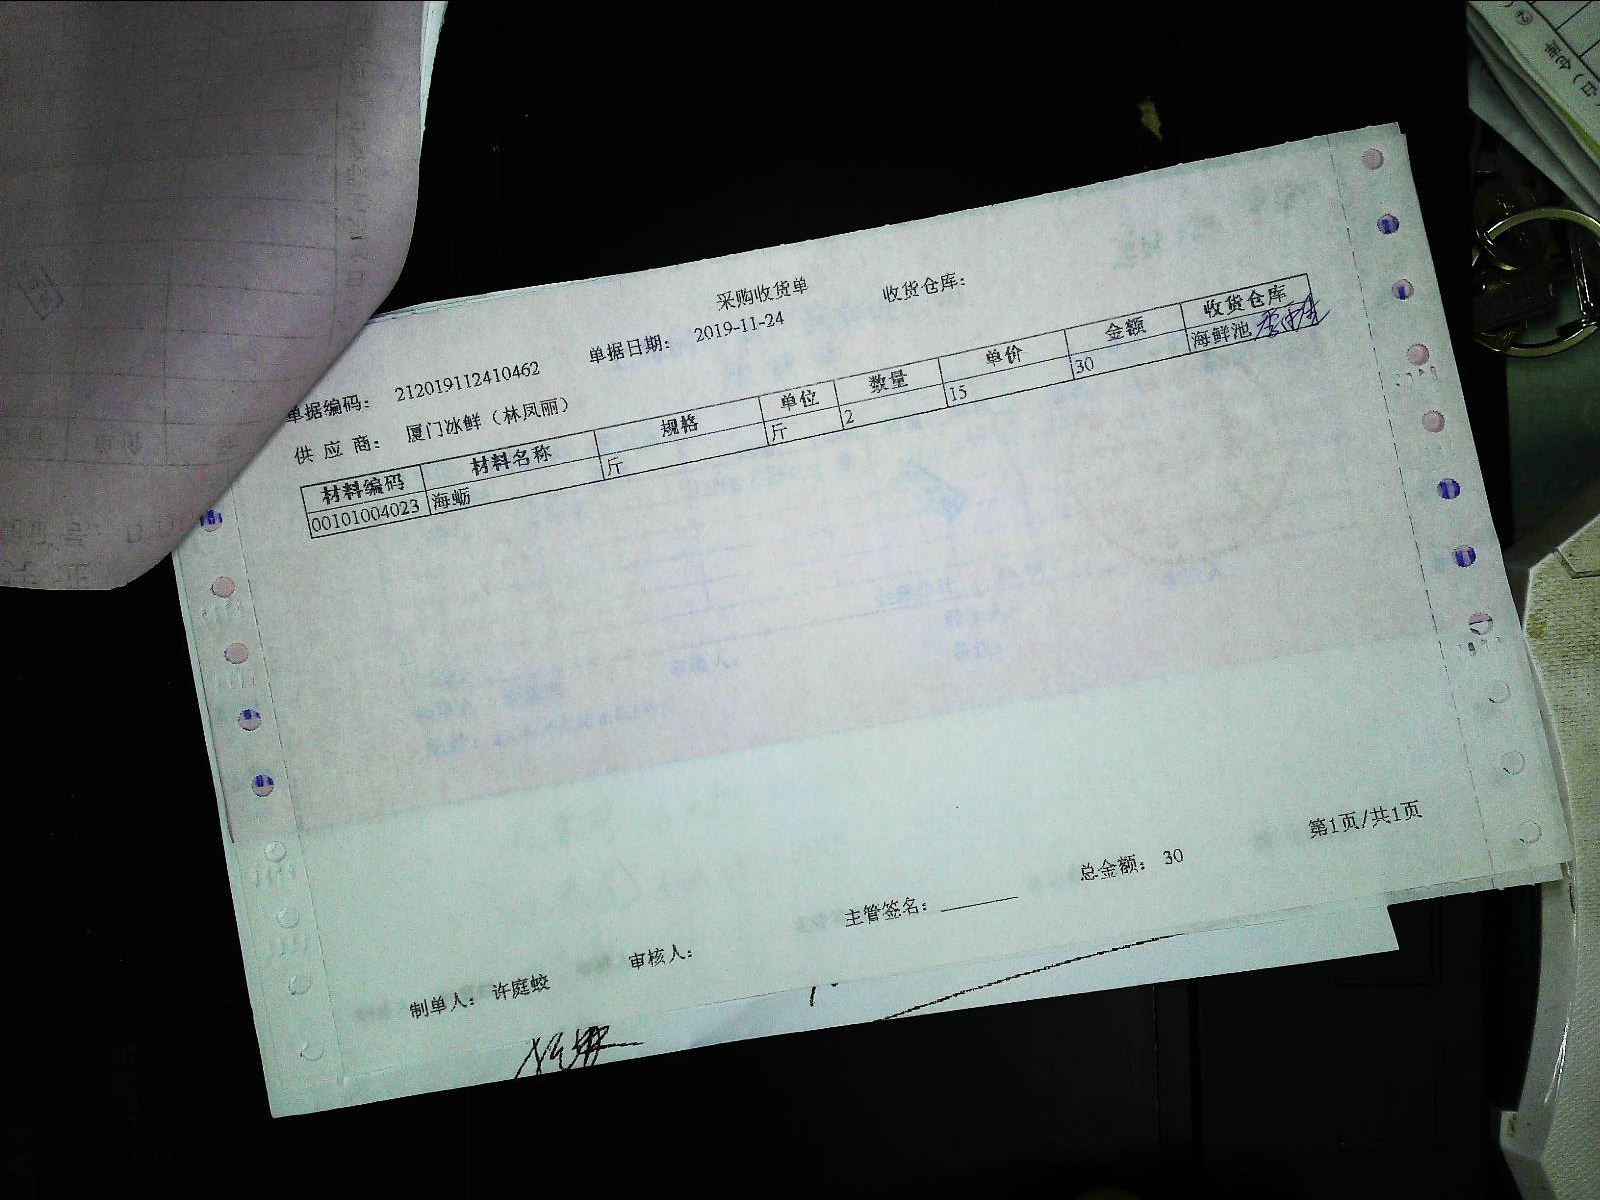 采购收货单
单据编码: 212019112410462 单据日期: 2019-11-24 收货仓库:
供 应 商: 厦门冰鲜（林凤丽）
材料编码 材料名称 规格 单位 数量 单价 金额 收货仓库
00101004023 海蛎 斤 斤 2 15 30 海鲜池
第1页/共1页
制单人: 许庭蛟 审核人: 主管签名: 总金额: 30